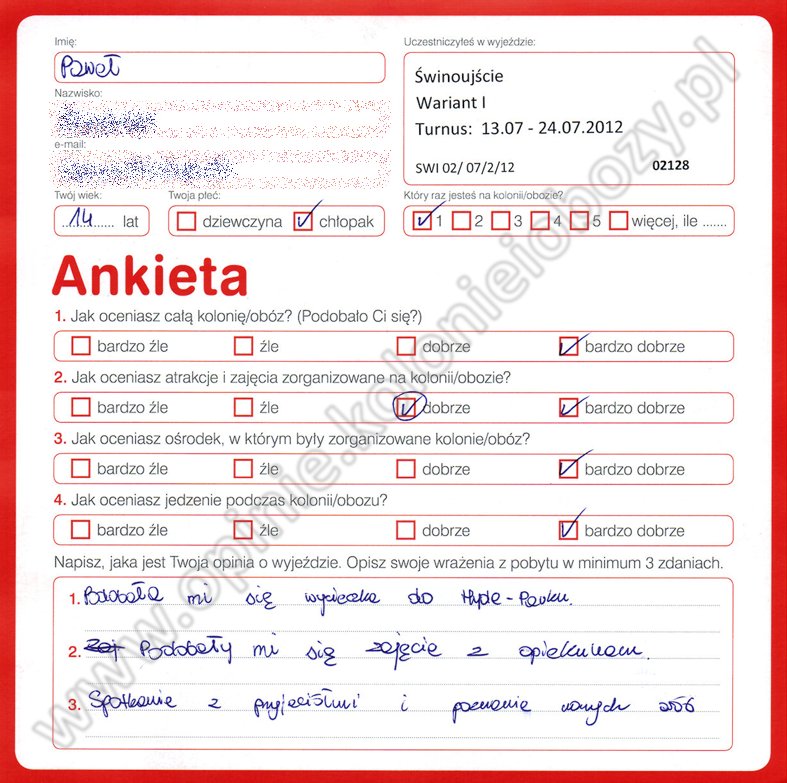 Imię:
Paweł
Uczestniczyłeś w wyjeździe:
Świnoujście
Wariant I
Turnus: 13.07 - 24.07.2012
SWI 02/ 07/2/12 02128
Nazwisko:
e-mail:
Twój wiek:
14 lat
Twoja płeć:
dziewczyna chłopak
Który raz jesteś na kolonii/obozie?
1 2 3 4 5 więcej, ile .......
Ankieta
1. Jak oceniasz całą kolonię/obóz? (Podobało Ci się?)
bardzo źle źle dobrze bardzo dobrze
2. Jak oceniasz atrakcje i zajęcia zorganizowane na kolonii/obozie?
bardzo źle źle dobrze bardzo dobrze
3. Jak oceniasz ośrodek, w którym były zorganizowane kolonie/obóz?
bardzo źle źle dobrze bardzo dobrze
4. Jak oceniasz jedzenie podczas kolonii/obozu?
bardzo źle źle dobrze bardzo dobrze
Napisz, jaka jest Twoja opinia o wyjeździe. Opisz swoje wrażenia z pobytu w minimum 3 zdaniach.
1. Podobała mi się wycieczka do Hyde-Parku.
2. Zaj Podobały mi się zajęcie z opiekunam.
3. Spotkanie z przyjaciółmi i poznanie nowych
www.opinie.kolonieiobozy.pl